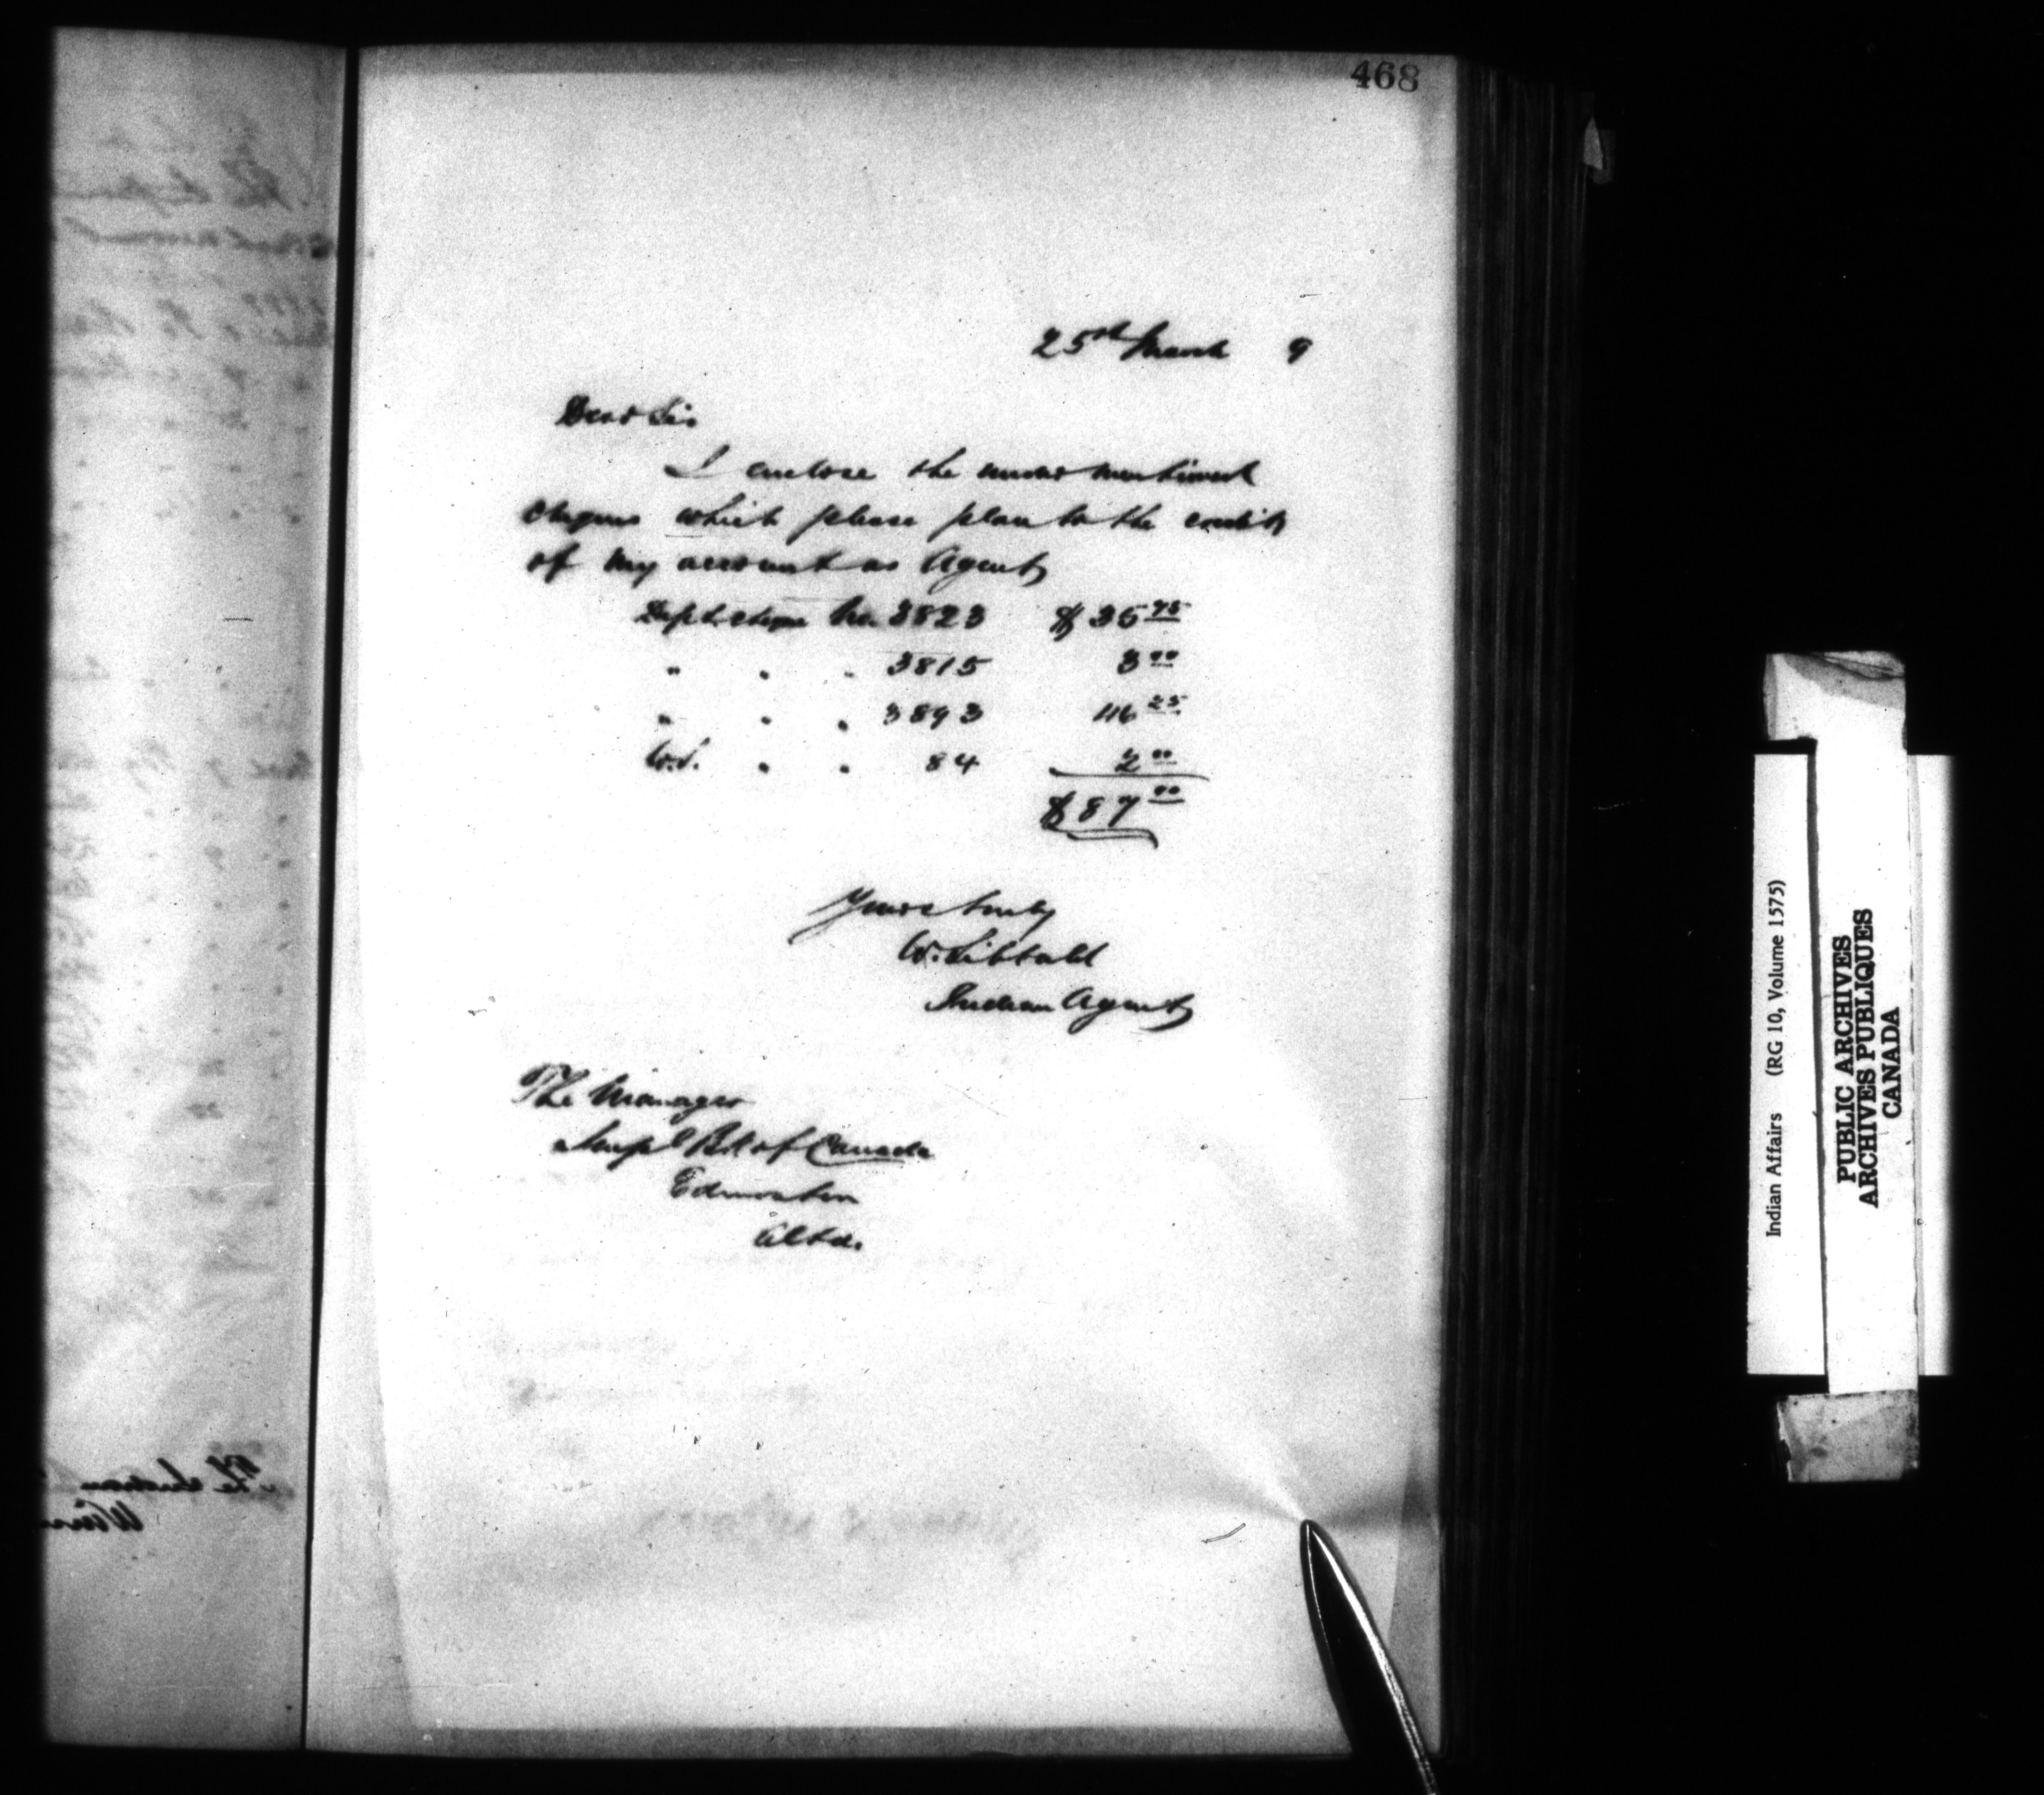 468
25th March 9
Dear Sir
I enclose the under mentioned
cheques which please place to the credit
of my account as Agent
Dept. cheque No. 3823 $35.75
" " " 3815 3.00
" " " 3893 46.25
W.S. " " 84 2.00
$87.00
Yours truly
W. Sibbald
Indian Agent
The Manager
Impl Bk of Canada
Edmonton
Alta.
Indian Affairs (RG 10, Volume 1575)
PUBLIC ARCHIVES
ARCHIVES PUBLIQUES
CANADA